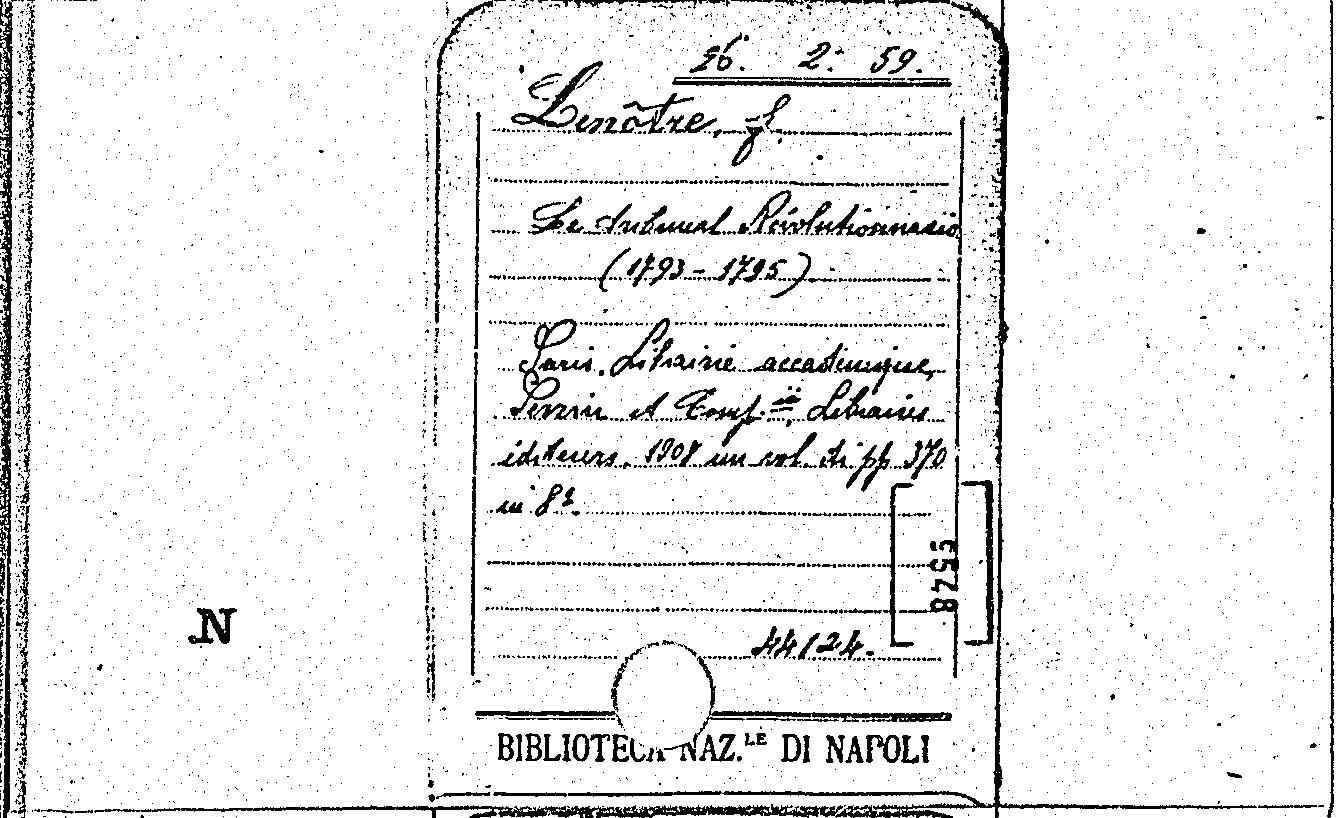 26. 2. 59.
Lenôtre, G.
Le tribunal Révolutionnaire
(1793 - 1795)
Paris. Librairie accademique,
Perrin et Comp.ie, Libraires
éditeurs. 1908 un vol. di pp 370
in 8º.
5548
44124.
N
BIBLIOTECA NAZ.LE DI NAPOLI